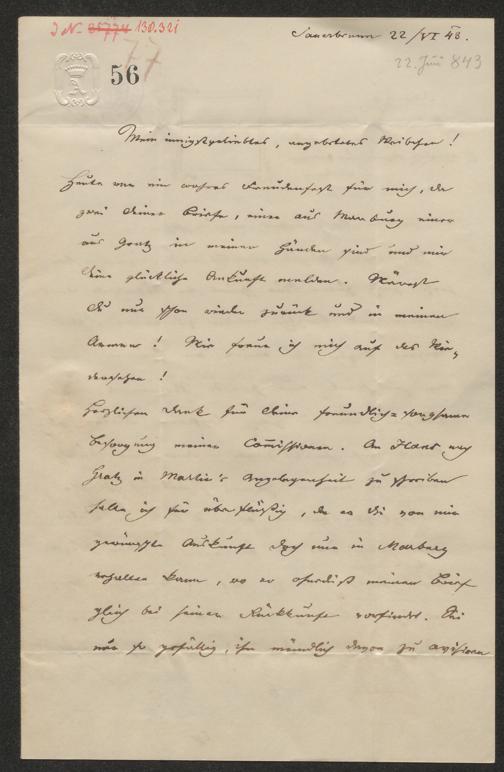 I N. 85774 130.321
77
56
Sauerbrunn 22/VI 43.
22. Juni 843
Mein innigstgeliebtes, angebetetes Weibchen!
Heute war ein wahres Freudenfest für mich, da
zwei deiner Briefe, einer aus Marburg einer
aus Gratz in meinen Händen sind und mir
deine glückliche Ankunft melden. Wärest
du nur schon wieder zurück und in meinen
Armen! Wie freue ich mich auf das Wie-
dersehen!
Herzlichen Dank für deine freundlich=sorgsame
Besorgung meiner Commissionen. An Hans nach
Gratz in Marbie's Angelegenheit zu schreiben
halte ich für überflüssig, da er die von mir
gewünschte Auskunft doch nur in Marburg
erhalten kann, wo er ohnedieß meinen Brief
gleich bei seiner Rückkunft vorfindet. Sei
nur so gefällig, ihn mündlich davon zu avisiren